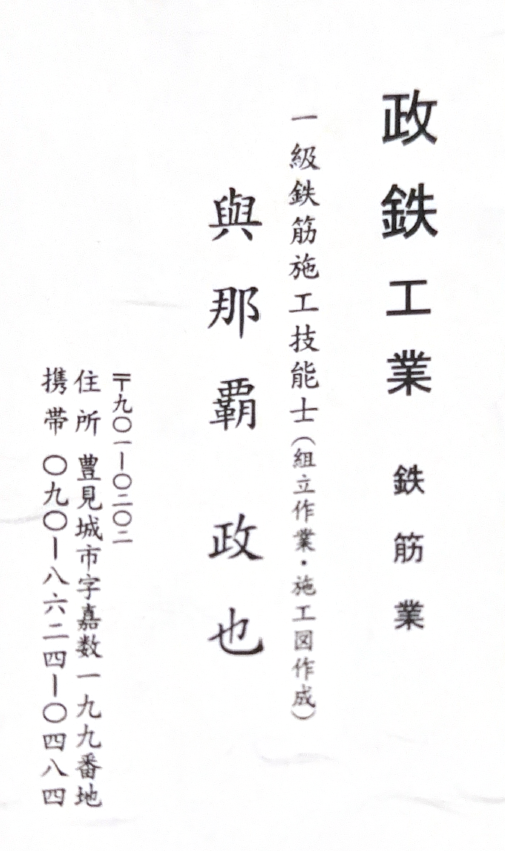 政鉄工業 鉄筋業
一級鉄筋施工技能士(組立作業・施工図作成)
與那覇 政也
〒九〇一ー〇二〇二
住所 豊見城市字嘉数一九九番地
携帯 〇九〇ー八六二四ー〇四八四